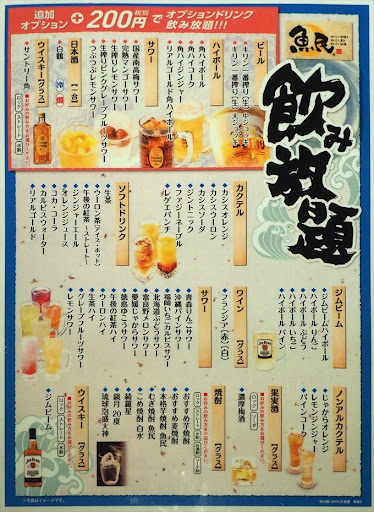 追加オプション + 200円 税別 で オプションドリンク飲み放題!!!
魚民
飲み放題
ビール
キリン一番搾り〈生〉中ジョッキ
キリン一番搾り〈生〉スタイニー
ハイボール
角ハイボール
角ハイジンジャー
角ハイコーク
リアルゴールド角ハイボール
サワー
国産南高梅サワー
完熟マンゴーサワー
生搾りレモンサワー
生搾りピンクグレープフルーツサワー
つぶつぶレモンサワー
日本酒【一合】
白鶴 冷 燗
ウイスキー【グラス】
サントリー角
ロック ストレート 水割
カクテル
カシスオレンジ
カシスウーロン
カシスソーダ
ジントニック
ファジーネーブル
レゲエパンチ
ソフトドリンク
生茶
ウーロン茶(アイス・ホット)
午後の紅茶〜ストレート〜
ジンジャーエール
オレンジジュース
コカ・コーラ
カルピスウォーター
リアルゴールド
ジムビーム
ジムビームハイボール
ハイボールりんご
ハイボールぶどう
ハイボールいちご
ハイボールパイン
ワイン【グラス】
フランジア〈赤〉〈白〉
サワー
青森りんごサワー
沖縄パインサワー
福岡いちごカルピスサワー
北海道ぶどうサワー
富良野メロンサワー
愛媛じゃばらサワー
徳島ゆこうサワー
午後の紅茶ハイ
ウーロンハイ
生茶ハイ
グレープフルーツサワー
レモンサワー
ノンアルカクテル
じゃばらオレンジ
レモンジンジャー
パインコーク
果実酒【グラス】
ロック ソーダ
濃厚梅酒
焼酎【グラス】
おすすめ芋焼酎
おすすめ麦焼酎
本格芋焼酎 魚民
むぎ焼酎 魚民
こめ焼酎 白水
鏡月20度
綾羅星
琉球泡盛大神
ウイスキー【グラス】
ジムビーム
※写真はイメージです。